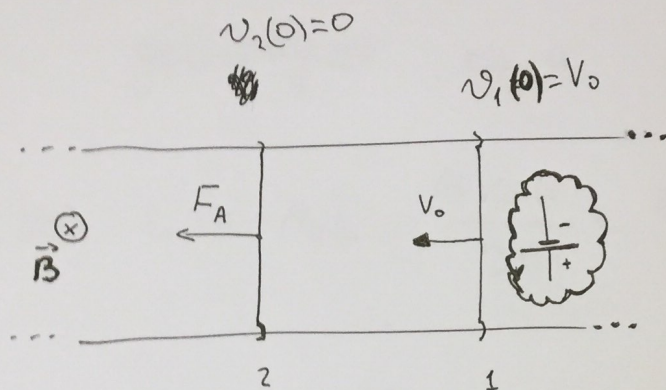 v₂(0)=0
v₁(0)=V₀
F_A
V₀
B⃗
-
+
2
1